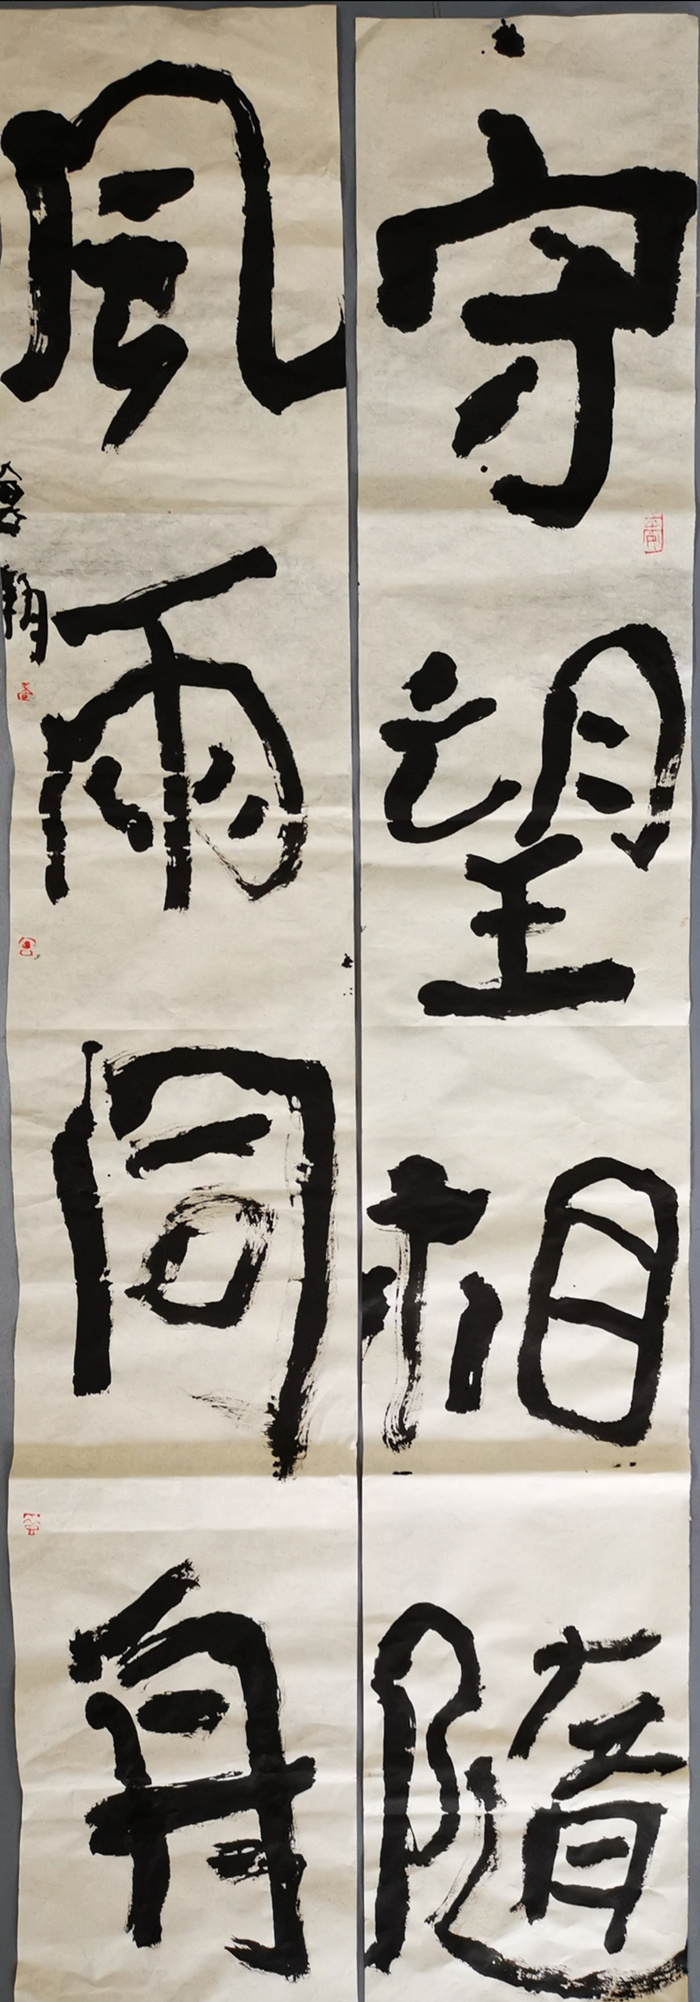 守望相隨
風雨同舟